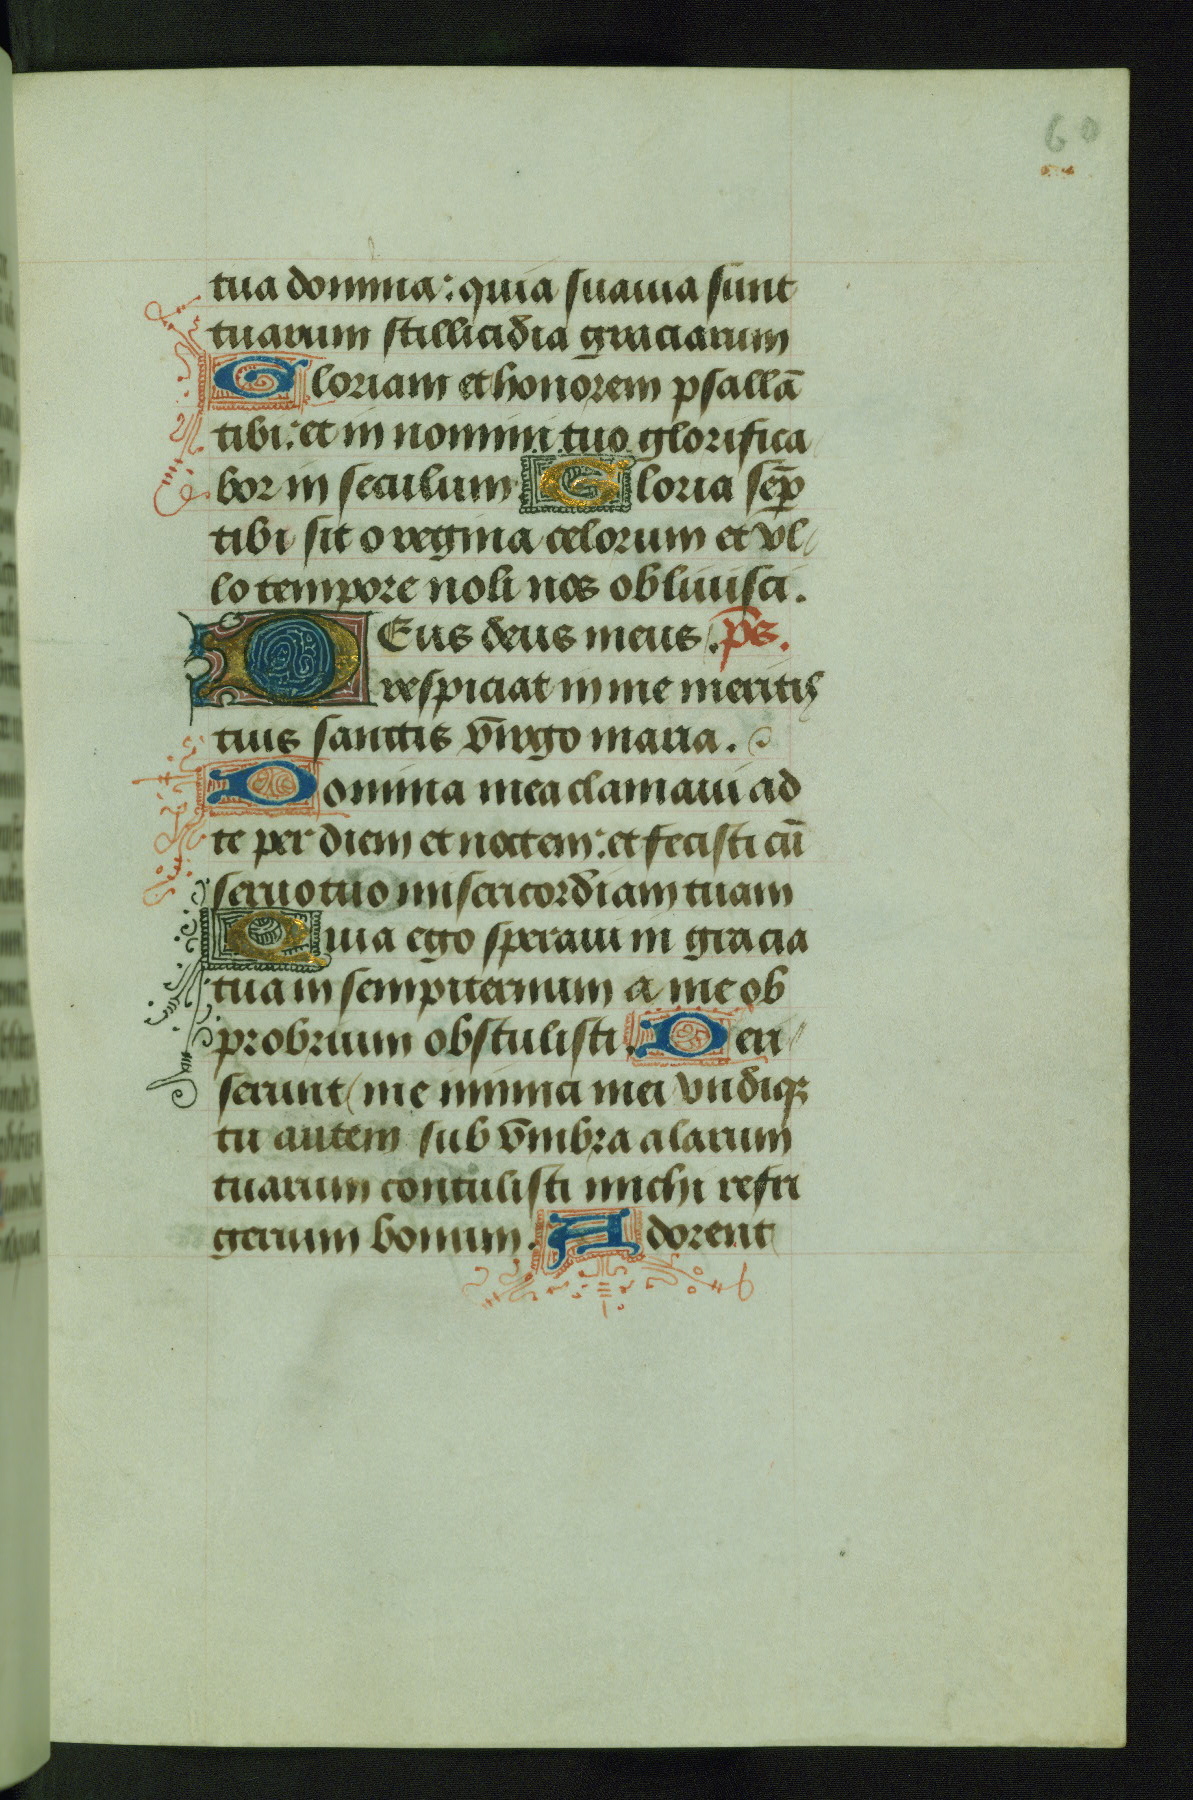 60
tua domina: quia suauia sunt
tuarum stillicidia graciarum
Gloriam et honorem psallā
tibi: et in nomini tuo glorifica
bor in seculum Gloria sep̄
tibi sit o regina celorum et vl
lo tempore noli nos obliuisci.
DEus deus meus. p̄s.
respiciat in me meritis
tuis sanctis v̄irgo maria.
Domina mea clamaui ad
te per diem et noctem: et fecisti cū
seruo tuo misericordiam tuam
Quia ego speraui in gracia
tua in sempiternum a me ob
probrium obstulisti. Deri
serunt me inimici mei vndiqꝫ
tu autem sub v̄mbra alarum
tuarum contulisti michi refri
gerium bonum. Adorent